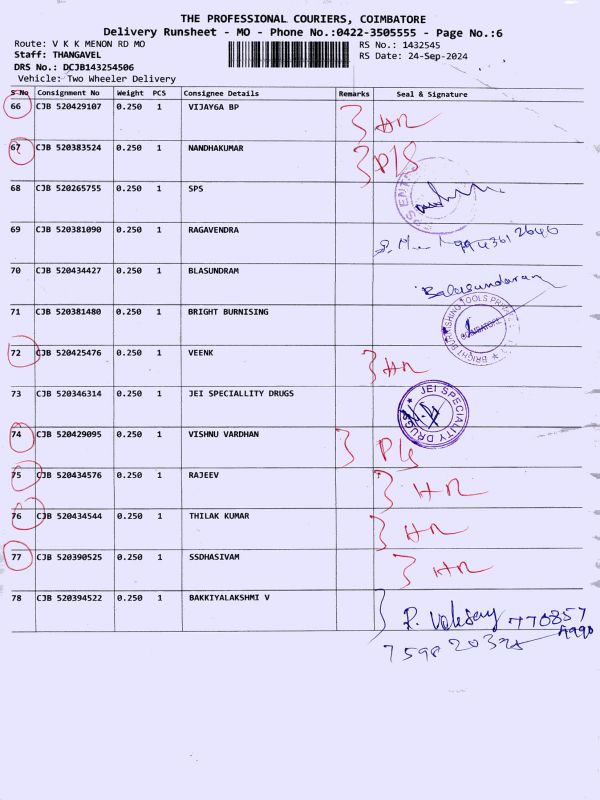 THE PROFESSIONAL COURIERS, COIMBATORE
Delivery Runsheet - MO - Phone No.:0422-3505555 - Page No.:6
Route: V K K MENON RD MO RS No.: 1432545
Staff: THANGAVEL RS Date: 24-Sep-2024
DRS No.: DCJB143254506
Vehicle: Two Wheeler Delivery
S No Consignment No Weight PCS Consignee Details Remarks Seal & Signature
66 CJB 520429107 0.250 1 VIJAYGA BP HR
67 CJB 520383524 0.250 1 NANDHAKUMAR P/S
68 CJB 520265755 0.250 1 SPS
69 CJB 520381090 0.250 1 RAGAVENDRA
70 CJB 520434427 0.250 1 BLASUNDRAM Balasundaram
71 CJB 520381480 0.250 1 BRIGHT BURNISING BRIGHT BURNISHING TOOLS COIMBATORE
72 CJB 520425476 0.250 1 VEENK HR
73 CJB 520346314 0.250 1 JEI SPECIALLITY DRUGS JEI SPECIALITY DRUGS
74 CJB 520429095 0.250 1 VISHNU VARDHAN P/S
75 CJB 520434576 0.250 1 RAJEEV HR
76 CJB 520434544 0.250 1 THILAK KUMAR HR
77 CJB 520390525 0.250 1 SSDHASIVAM HR
78 CJB 520394522 0.250 1 BAKKIYALAKSHMI V 770857